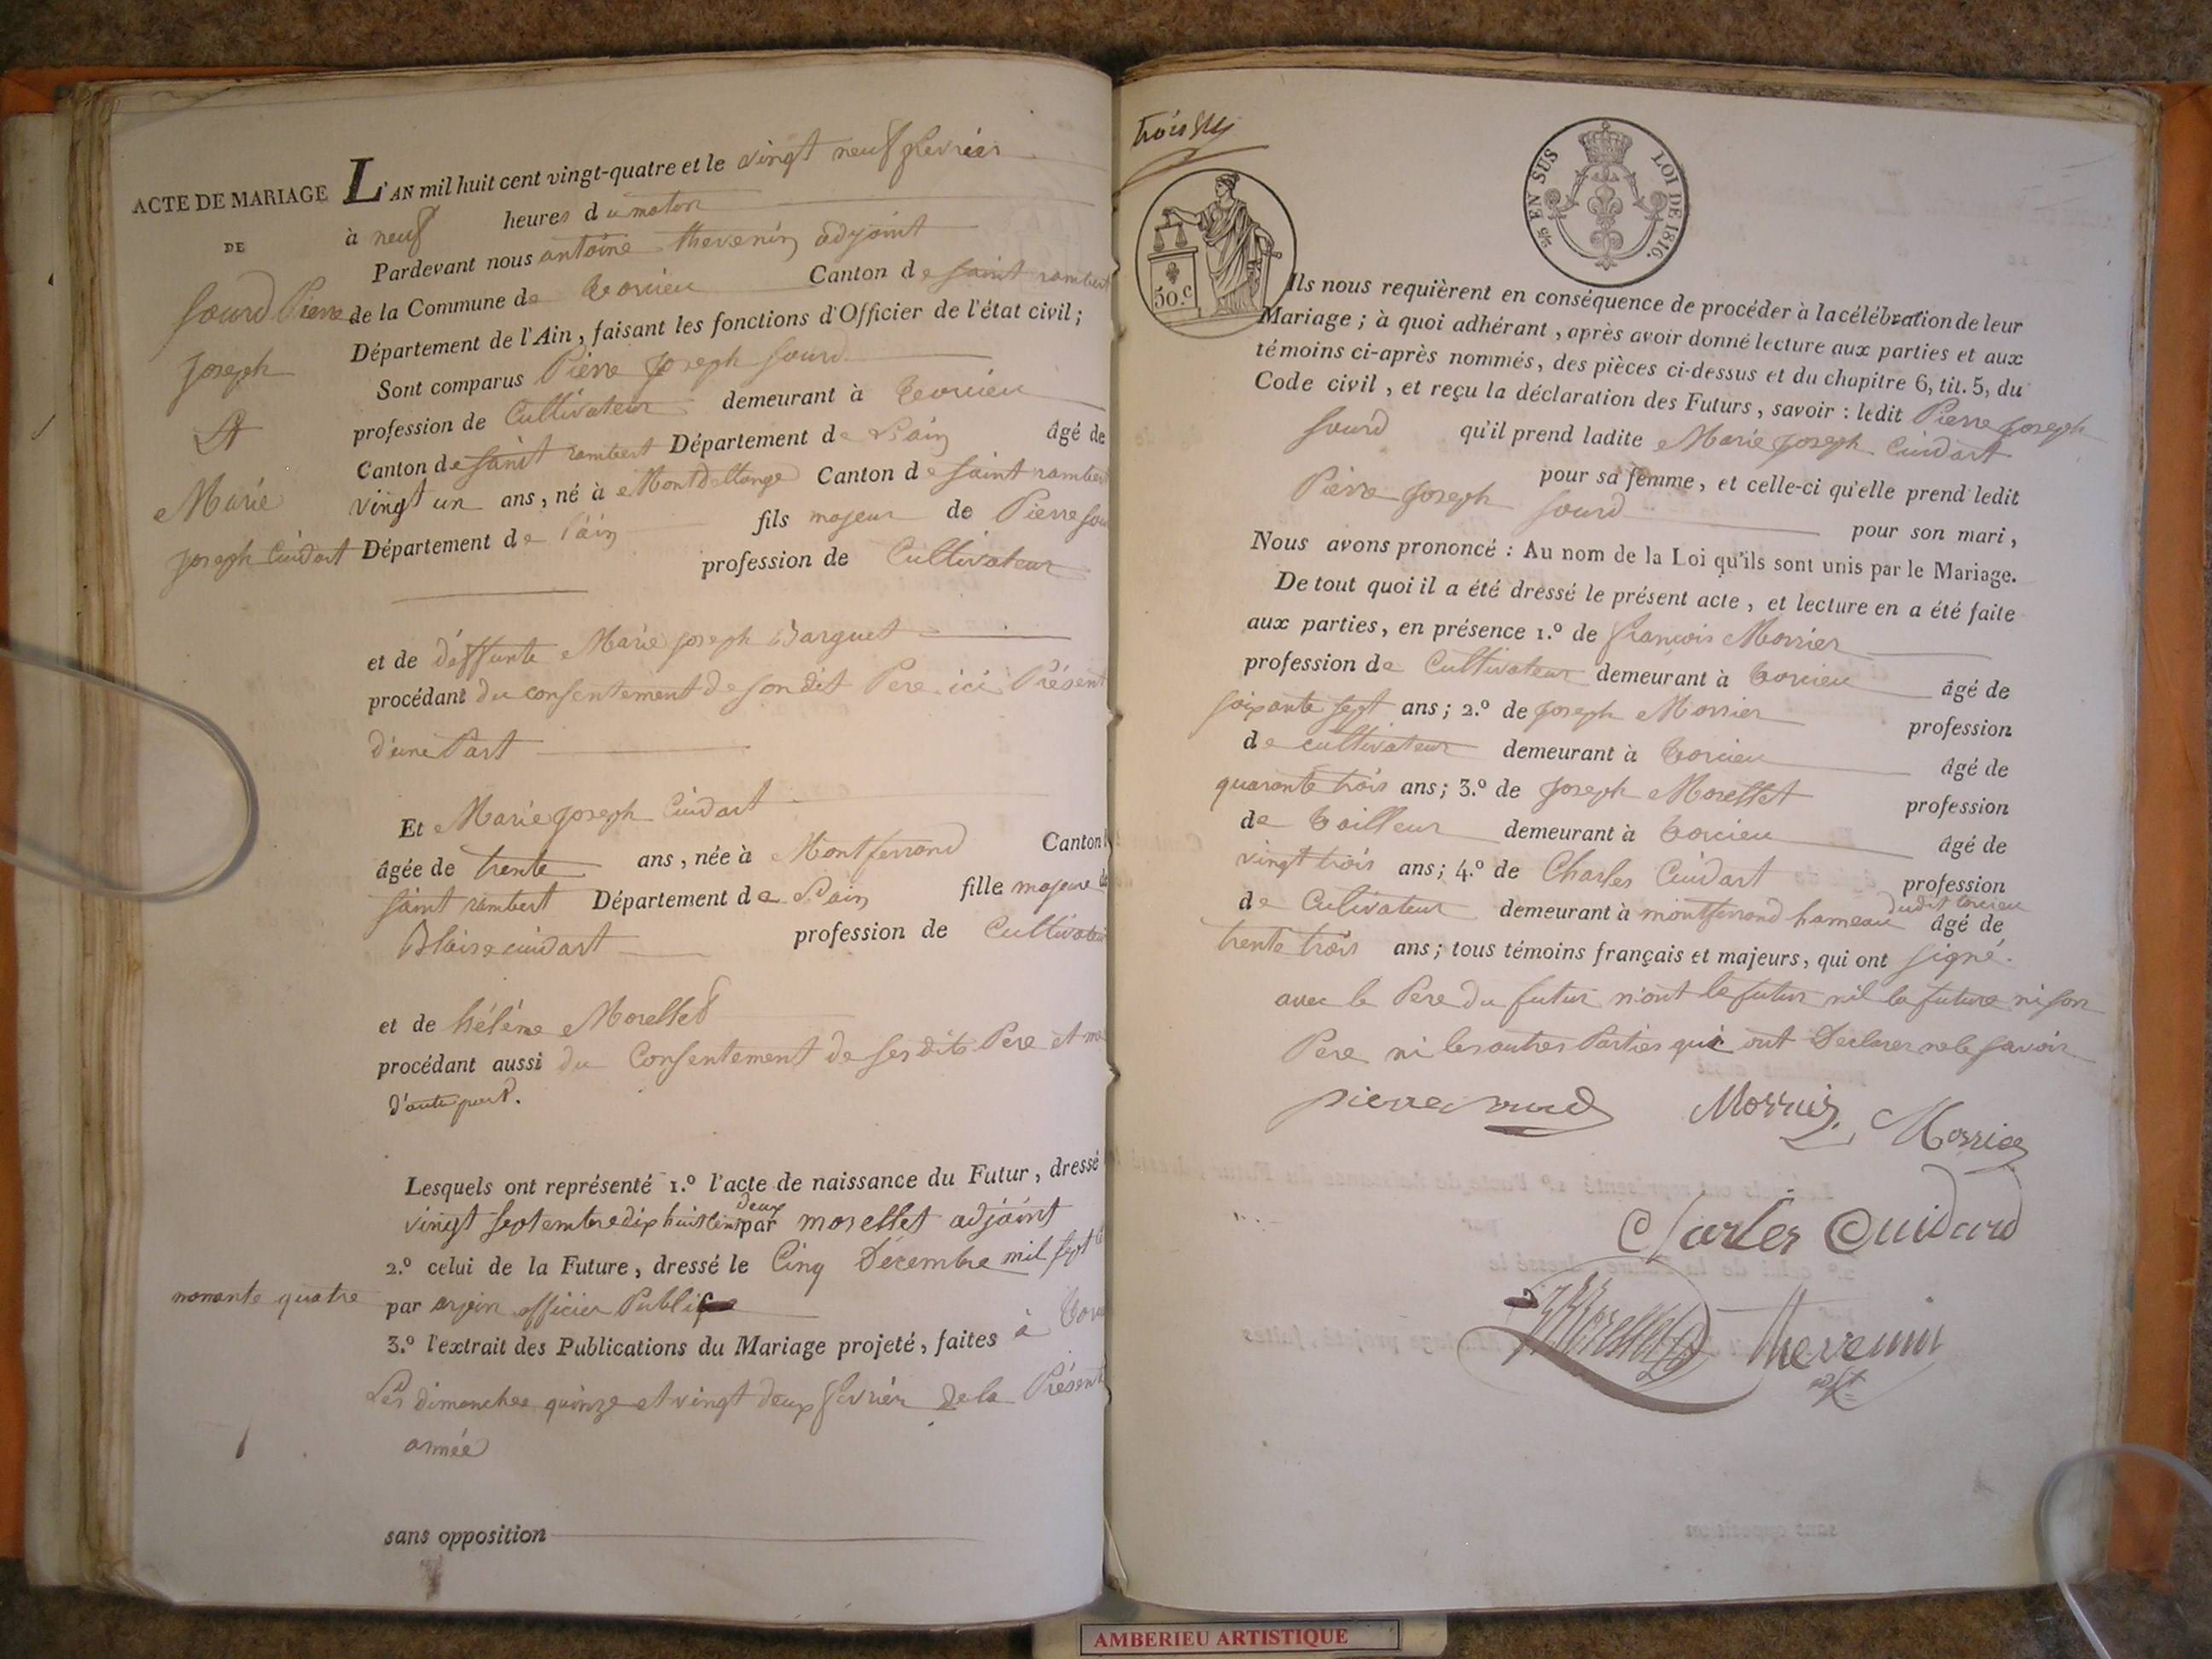 ACTE DE MARIAGE
DE
Sourd Pierre
Joseph
Et
Marie
Joseph Cuidart
L'AN mil huit cent vingt-quatre et le vingt neuf fevrier
à neuf heures du matin
Pardevant nous antoine thevenin adjoint
de la Commune de torcieu Canton de saint rambert
Département de l'Ain, faisant les fonctions d'Officier de l'état civil;
Sont comparus Pierre Joseph sourd
profession de Cultivateur demeurant à torcieu
Canton de saint rambert Département de L'ain âgé de
vingt un ans, né à Canton de saint rambert
Département de l'ain fils majeur de Pierre
profession de Cultivateur
et de déffunte Marie joseph Barguet
procédant du consentement de son dit Pere ici Présent
d'une Part
Et Marie joseph Cuidart
âgée de trente ans, née à Montferrand Canton
saint rambert Département de L'ain fille majeure de
Blaise cuidart profession de Cultivateur
et de héléne Morellet
procédant aussi du Consentement de ses dits Pere et
d'autre part.
Lesquels ont représenté 1.º l'acte de naissance du Futur, dressé
vingt septembre dix huit cent deux par morellet adjoint
2.º celui de la Future, dressé le Cinq Décembre mil sept
nonante quatre
par officier Public
3.º l'extrait des Publications du Mariage projeté, faites à
Les dimanches quinze et vingt deux fevrier de la Présent
année
sans opposition
trois
50.C
EN SUS LOI DE 1816.
Ils nous requièrent en conséquence de procéder à la célébration de leur
Mariage; à quoi adhérant, après avoir donné lecture aux parties et aux
témoins ci-après nommés, des pièces ci-dessus et du chapitre 6, tit. 5, du
Code civil, et reçu la déclaration des Futurs, savoir : ledit Pierre Joseph
sourd qu'il prend ladite Marie Joseph Cuidart
pour sa femme, et celle-ci qu'elle prend ledit
Pierre Joseph sourd pour son mari,
Nous avons prononcé : Au nom de la Loi qu'ils sont unis par le Mariage.
De tout quoi il a été dressé le présent acte, et lecture en a été faite
aux parties, en présence 1.º de françois Morrier
profession de Cultivateur demeurant à torcieu âgé de
soixante sept ans; 2.º de joseph Morrier profession
de cultivateur demeurant à torcieu âgé de
quarante trois ans; 3.º de Joseph Morellet profession
de tailleur demeurant à torcieu âgé de
vingt trois ans; 4.º de Charles Cuidart profession
de Culivateur demeurant à montferrand hameau dudit torcieu âgé de
trente trois ans; tous témoins français et majeurs, qui ont signé.
avec le Pere du futur n'ont le futur nil la future ni son
Pere ni les autres Parties qui ont Declarer ne le savoir
pierre sourd Morrier Morrier
Charles Cuidard
Morellet thevenin
adjt
AMBERIEU ARTISTIQUE